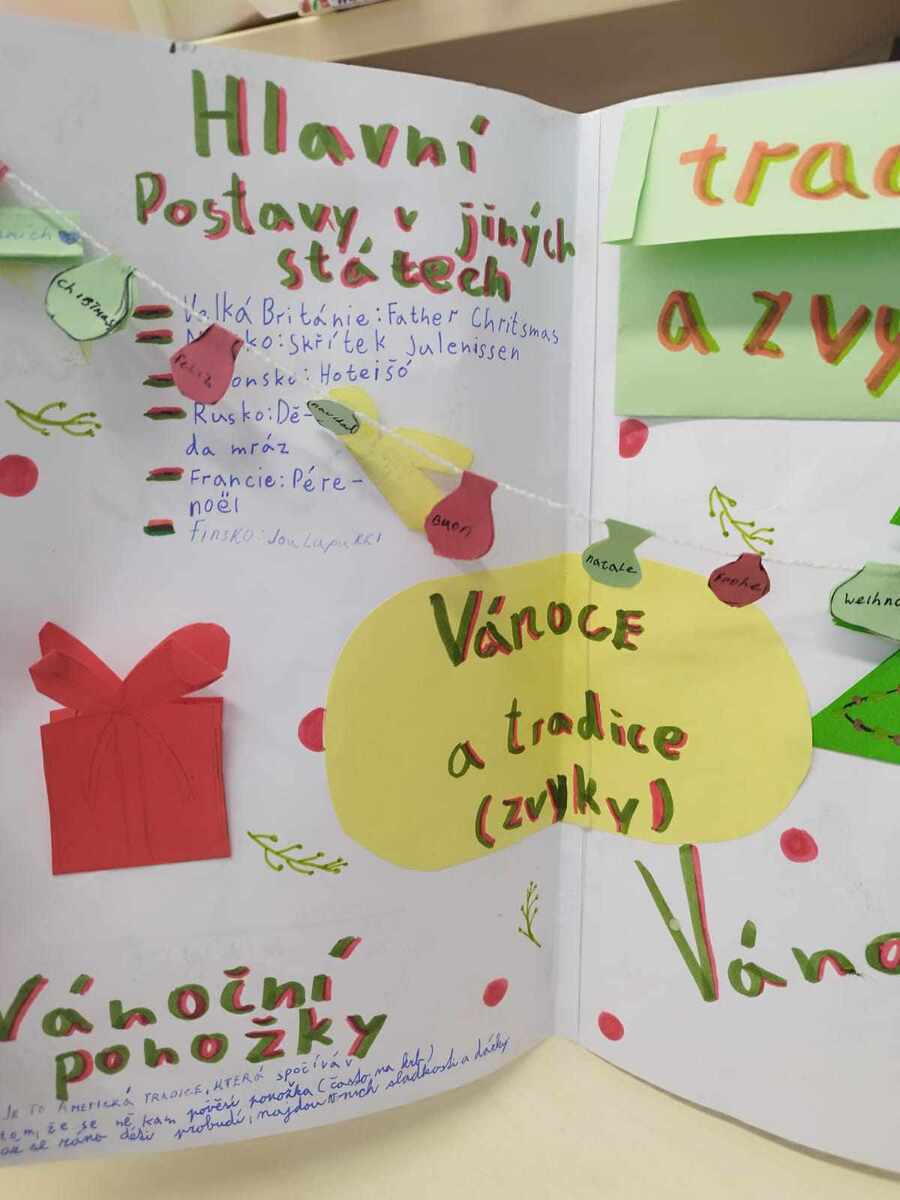 Hlavní
Postavy v jiných
státech
Velká Británie: Father Chritsmas
ko: Skřítek Julenissen
onsko: Hoteišó
Rusko: Dě-
da mráz
Francie: Pére-
noël
Finsko: Joulupukki
Feliz
navidad
Buon
natale
Frohe
Weihna
trad
a zvy
Vánoce
a tradice
(zvyky)
Váno
Vánoční
ponožky
Je to Americká tradice, která spočívá v
tom, že se někam pověsí ponožka (často na krb)
ráno děti probudí, najdou v nich sladkosti a dárky